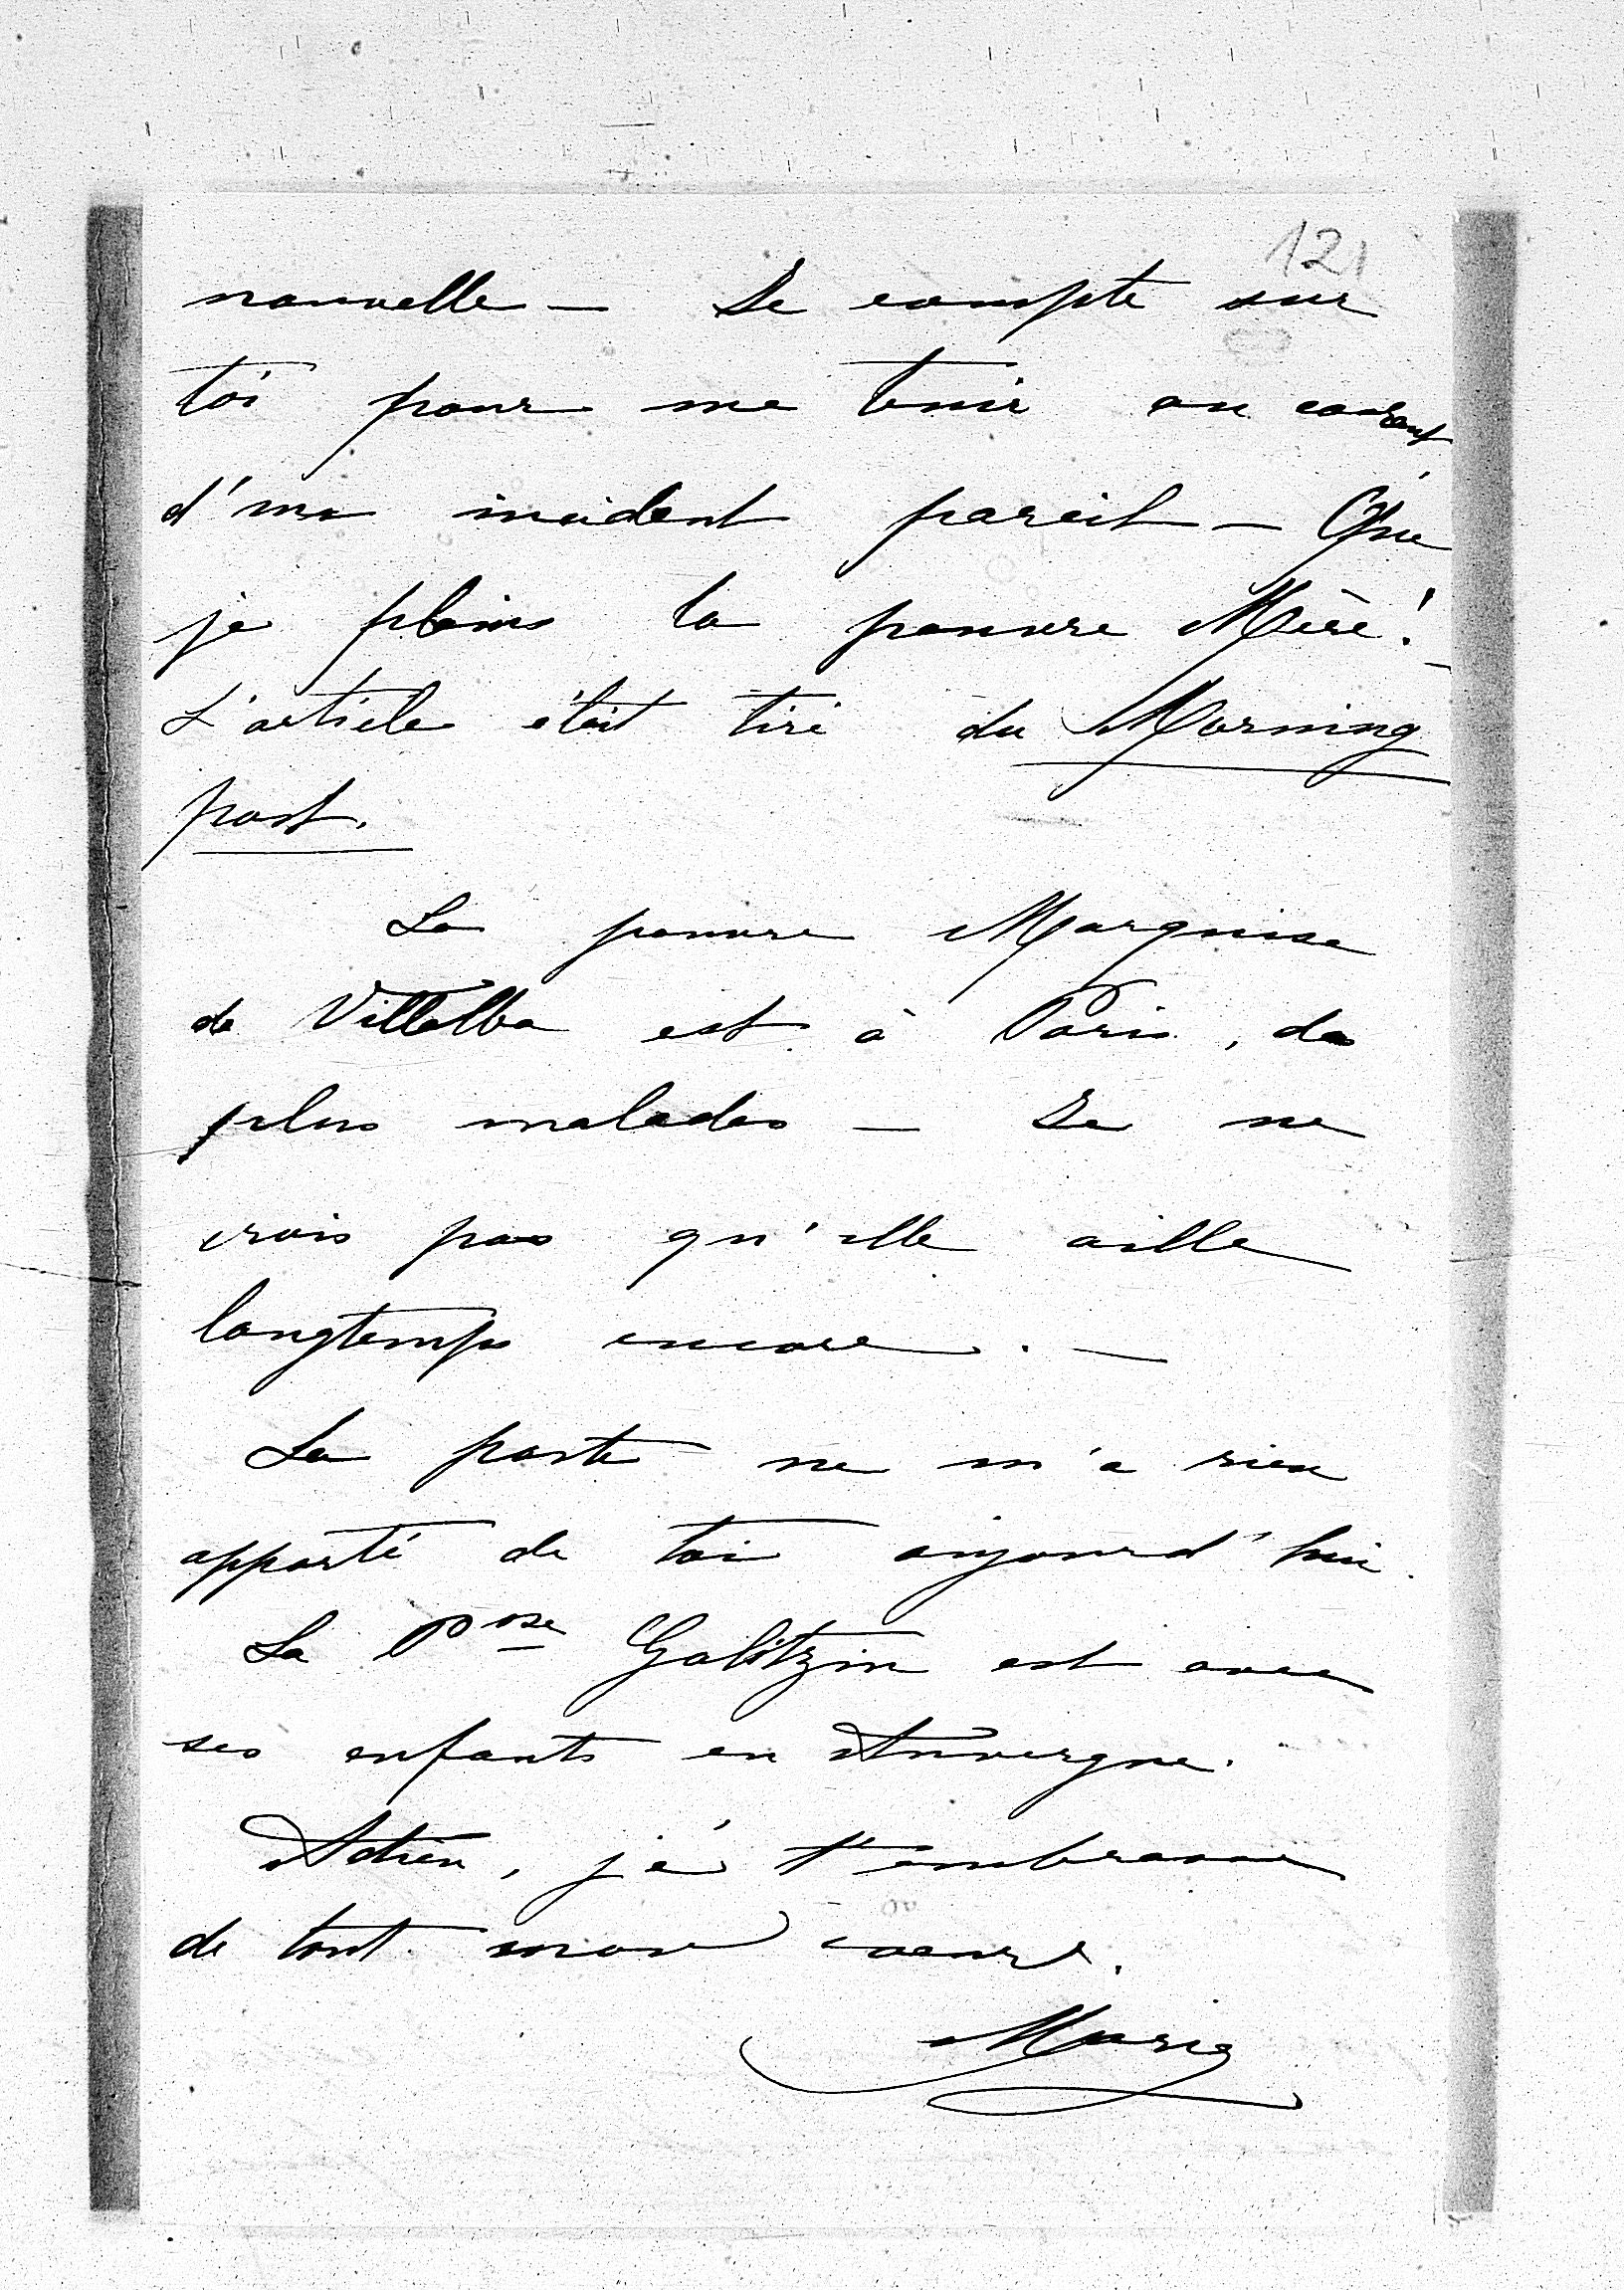 121
nouvelle — Je compte sur
toi pour me tenir au courant
d'un incident pareil — Que
je plains la pauvre Mère! —
L'article était tiré du Morning
post.
La pauvre Marquise
de Villalba est à Paris, des
plus malades — Je ne
crois pas qu'elle aille
longtemps encore. —
La poste ne m'a rien
apporté de toi aujourd'hui.
La Psse Galitzin est avec
ses enfants en Auvergne.
Adieu, je t'embrasse
de tout mon coeur.
Marie